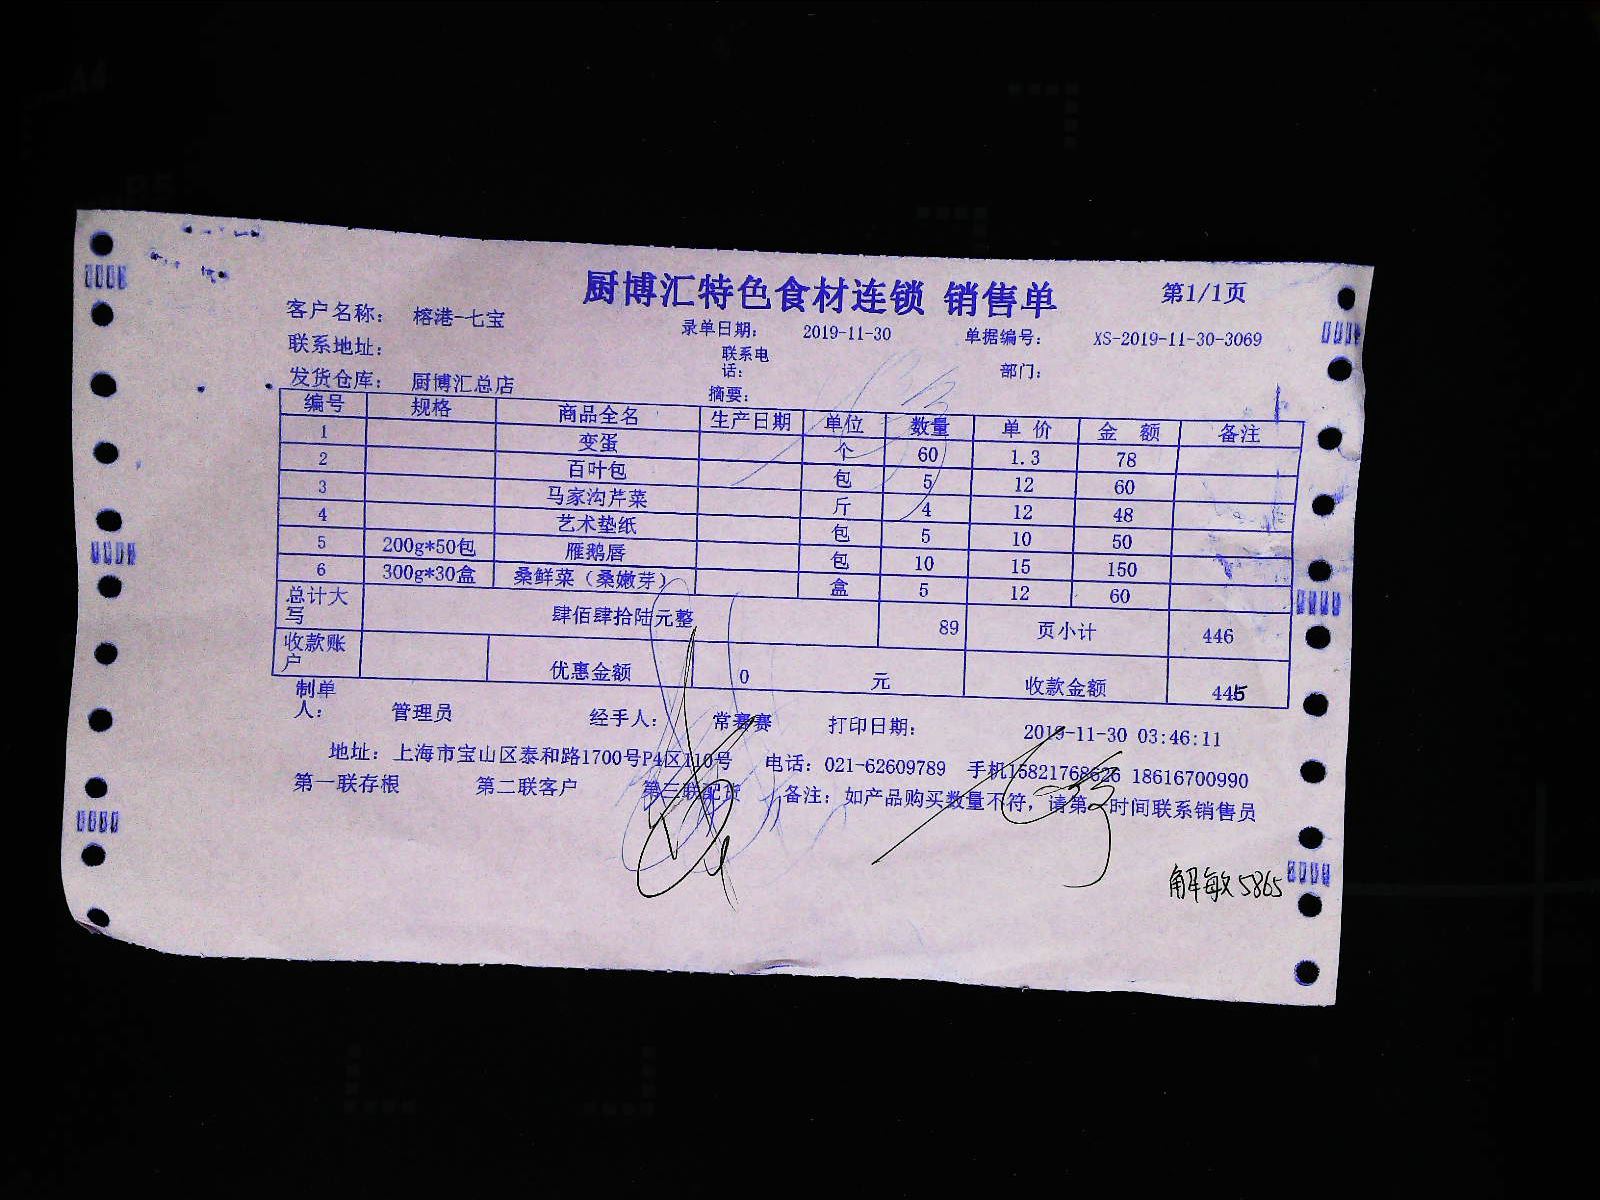 厨博汇特色食材连锁 销售单 第1/1页
客户名称: 榕港-七宝 录单日期: 2019-11-30 单据编号: XS-2019-11-30-3069
联系地址: 联系电话: 部门:
发货仓库: 厨博汇总店 摘要:
编号 规格 商品全名 生产日期 单位 数量 单 价 金 额 备注
1 变蛋 个 60 1.3 78
2 百叶包 包 5 12 60
3 马家沟芹菜 斤 4 12 48
4 艺术垫纸 包 5 10 50
5 200g*50包 雁鹅唇 包 10 15 150
6 300g*30盒 桑鲜菜（桑嫩芽） 盒 5 12 60
总计大写 肆佰肆拾陆元整 89 页小计 446
收款账户 优惠金额 0 元 收款金额 445
制单人: 管理员 经手人: 常赛赛 打印日期: 2019-11-30 03:46:11
地址: 上海市宝山区泰和路1700号P4区110号 电话: 021-62609789 手机15821768626 18616700990
第一联存根 第二联客户 第三联配货 备注: 如产品购买数量不符, 请第一时间联系销售员
解敏5865